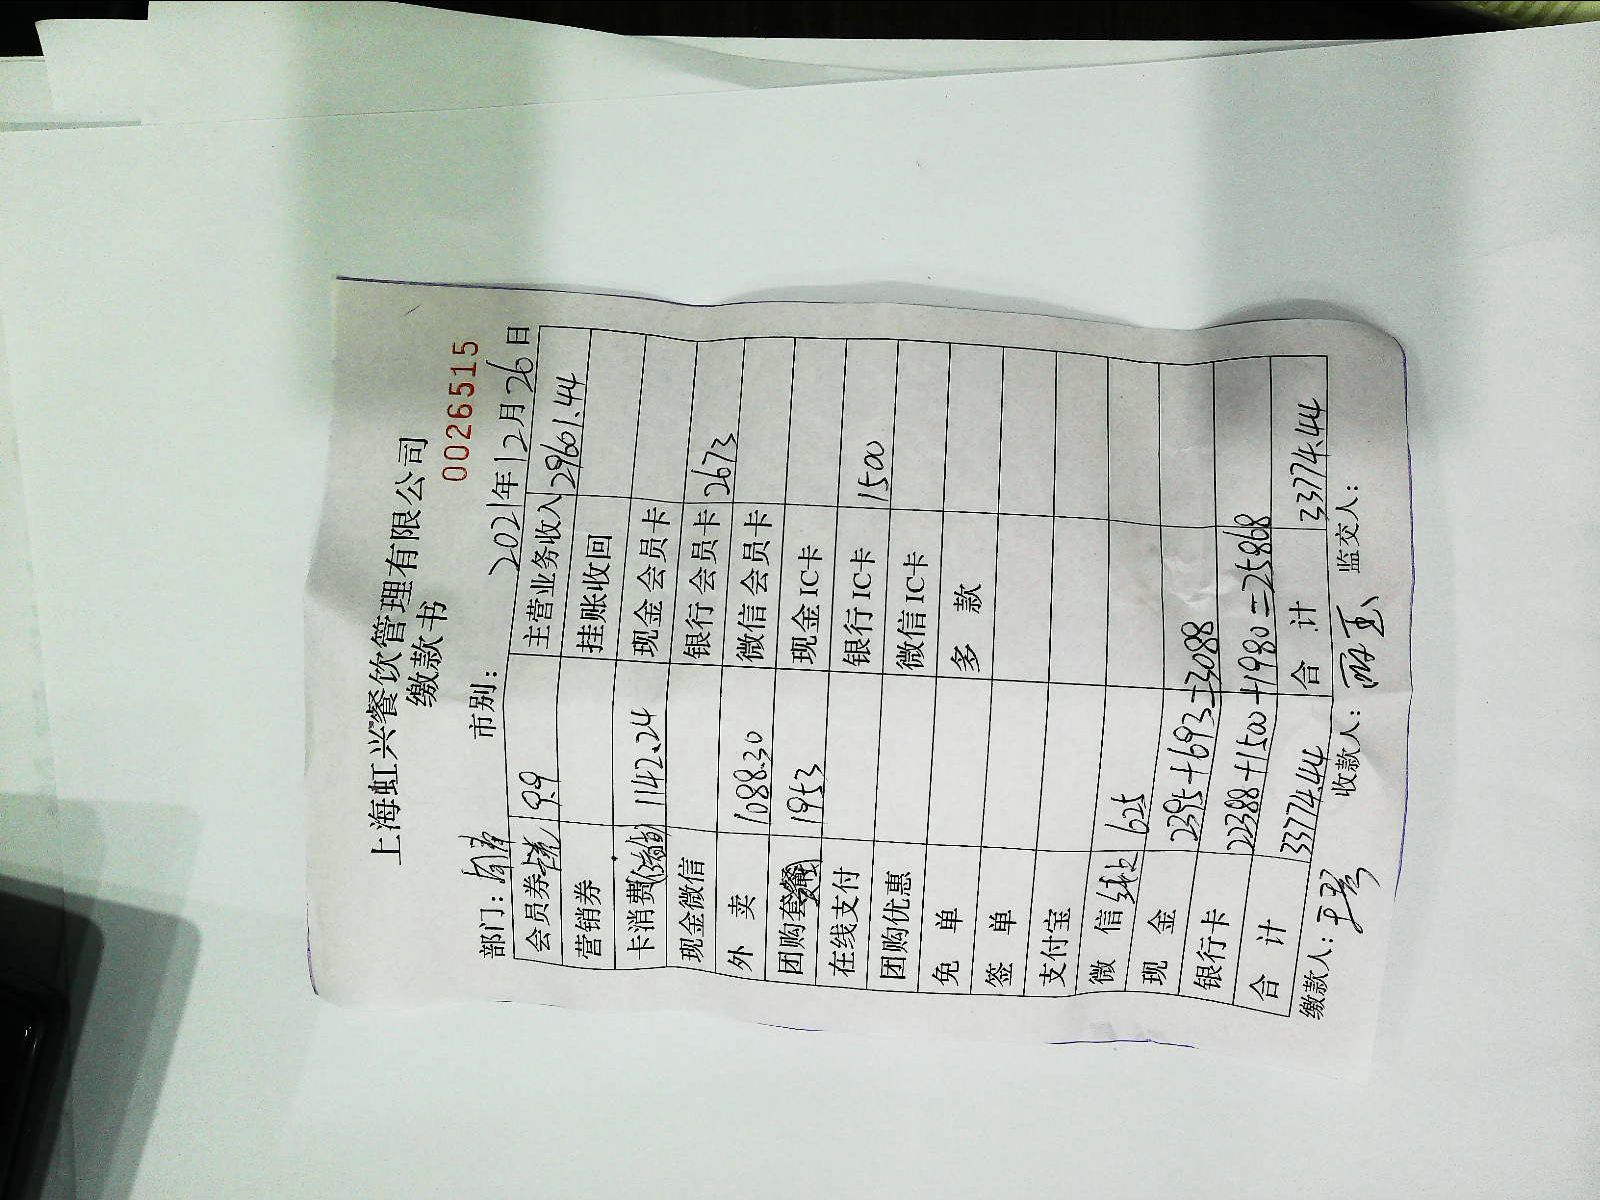 上海虹兴餐饮管理有限公司
缴款书
0026515
部门: 市别: 2021年12月26日
会员券 9.9 主营业务收入 29601.44
营销券 挂账收回
卡消费 1142.24 现金会员卡
现金微信 银行会员卡 2673
外 卖 1088.30 微信会员卡
团购套餐 1953 现金IC卡
在线支付 银行IC卡 1500
团购优惠 微信IC卡
免 单 多 款
签 单
支付宝
微 信 线上 625
现 金 2395+693=3088
银行卡 22388+1500+1980=25868
合 计 33774.44 合 计 33774.44
缴款人: 收款人: 监交人: